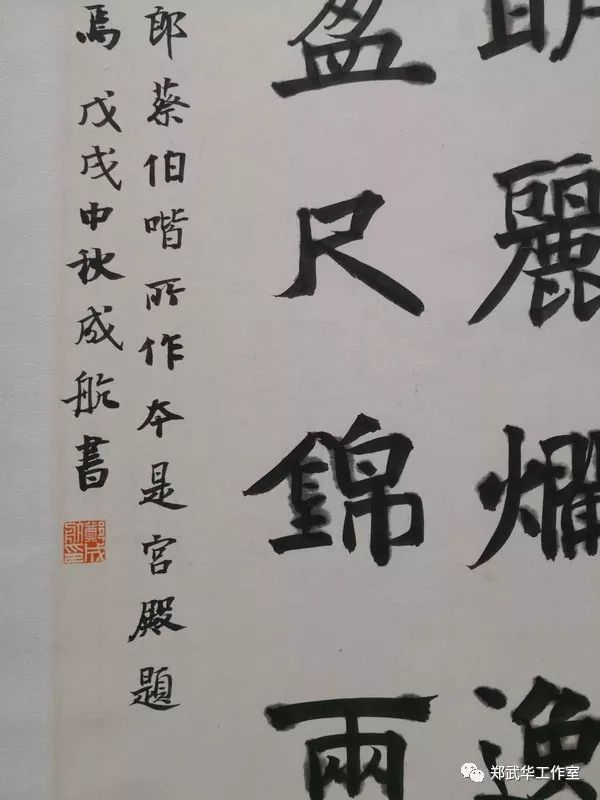 麗爛
盈尺錦兩
郎蔡伯喈所作夲是宮殿題
焉戊戌中秋成航書
鄭成航印
郑武华工作室